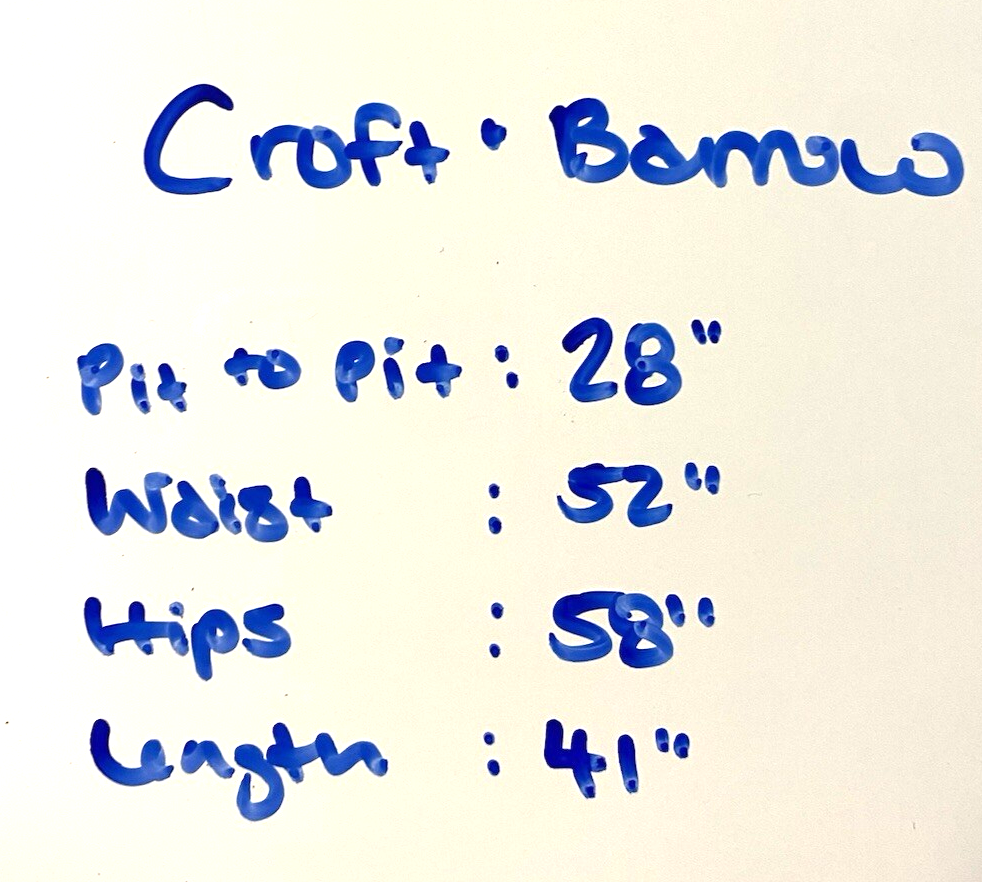 Croft · Barrow
Pit to Pit : 28"
Waist : 52"
Hips : 58"
Length : 41"